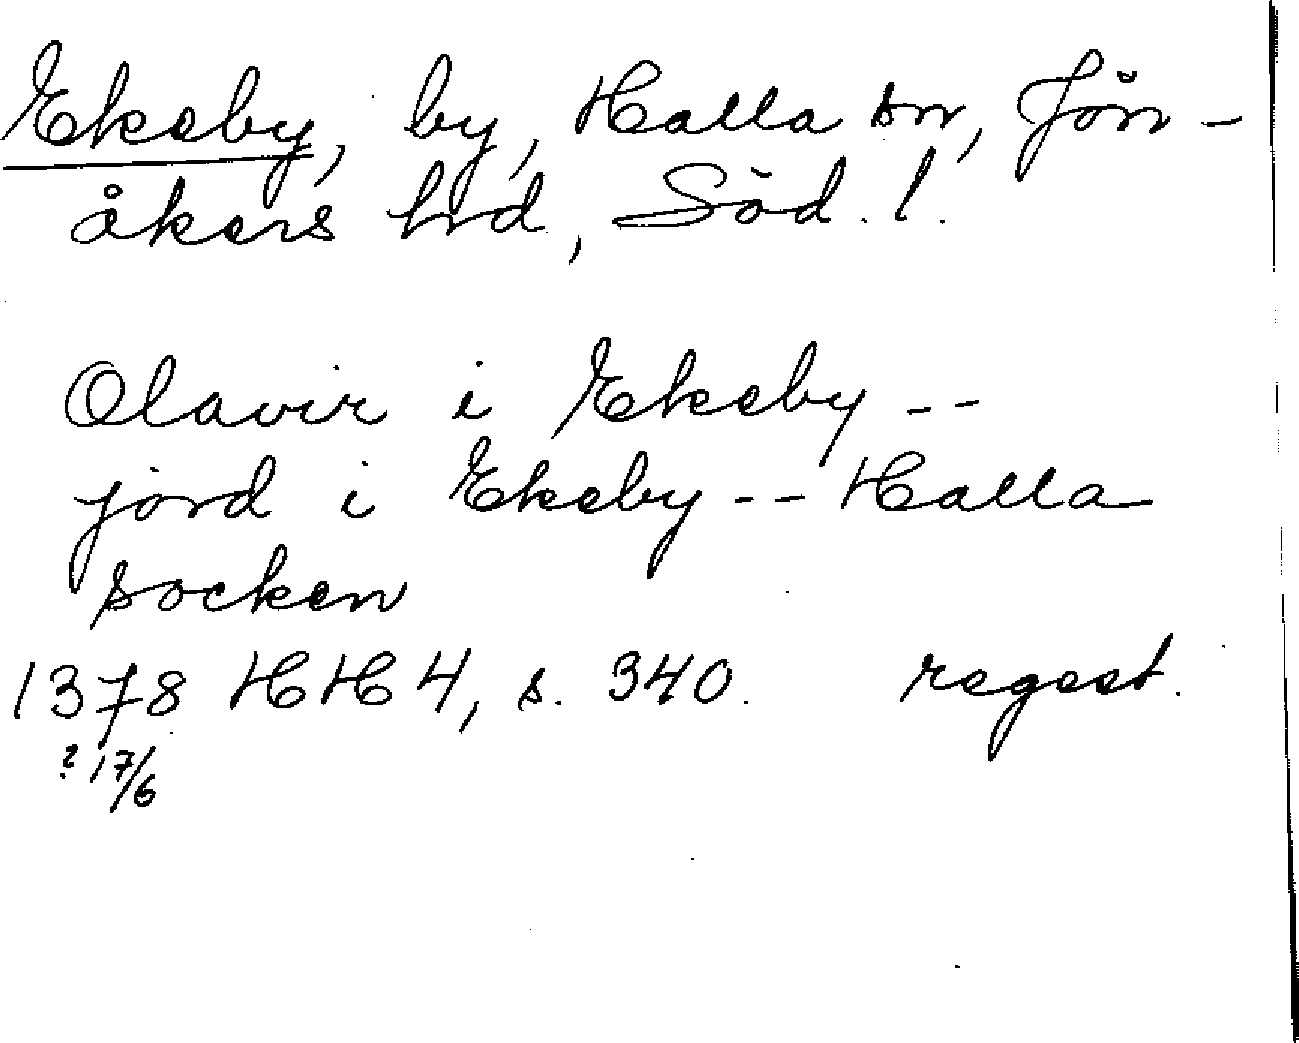 Ekeby, by, Halla sn, Jön-
åkers hd, Söd. l.
Olavir i Ekeby --
jord i Ekeby -- Halla
socken
1378 HH 4, s. 340. regest.
? 17/6